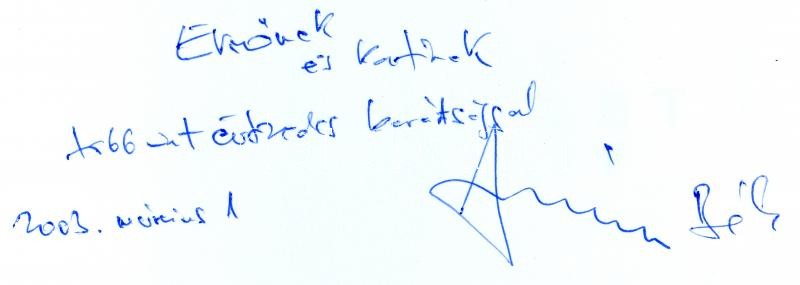 Ernőnek
és Katinak
több mint évtizedes barátsággal
2003. március 1
Béla